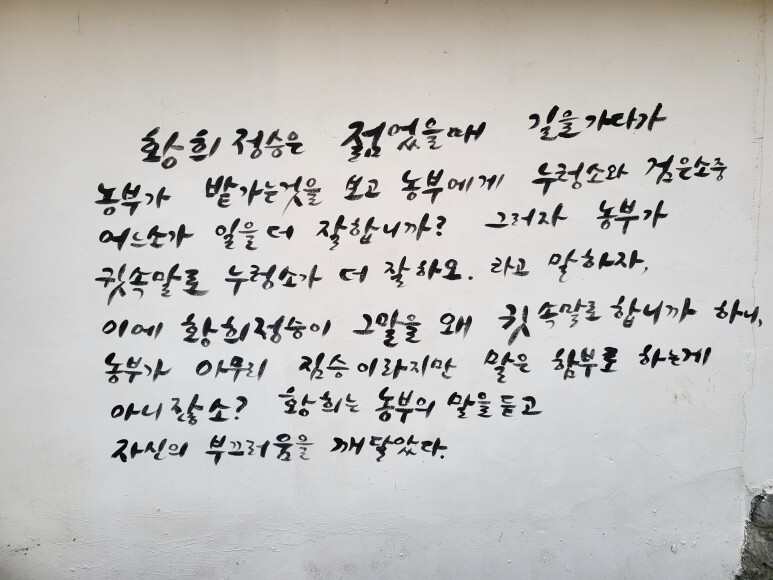 황희정승은 젊었을때 길을가다가
농부가 밭가는것을 보고 농부에게 누렁소와 검은소중
어느소가 일을더 잘합니까? 그러자 농부가
귓속말로 누렁소가 더 잘하오. 라고 말하자,
이에 황희정승이 그말을 왜 귓속말로합니까 하니,
농부가 아무리 짐승이라지만 말은 함부로 하는게
아니잖소? 황희는 농부의 말을듣고
자신의 부끄러움을 깨달았다.